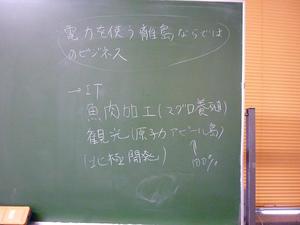 電力を使う離島ならでは
のビジネス
→IT
魚肉加工(マグロ養殖)
観光(原子力アピール島)
(北極開発)
100%